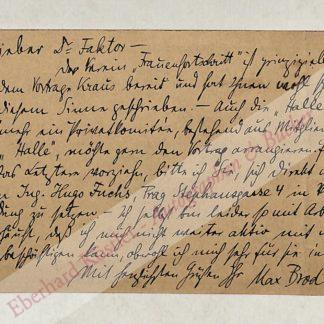 Lieber Dr Faktor –
Der Verein „Frauenfortschritt" ist prinzipiell
dem Vortrage Kraus bereit und hat Ihnen wohl
diesem Sinne geschrieben. – Auch die „Halle
mehr ein Privatkomitée, bestehend aus Mitglie
„Halle", möchte gern den Vortrag arrangieren.
das letztere vorziehn, bitte ich Sie, sich direkt
Ing. Hugo Fuchs, Prag Stephansgasse 4 in V
dung zu setzen. – Ich selbst bin leider so mit Ar
häuft, daß ich mich nicht weiter aktiv mit
beschäftigen kann, obwohl ich mich sehr für sie in
Mit herzlichsten Grüßen Ihr Max Brod
Eberhard Köstler